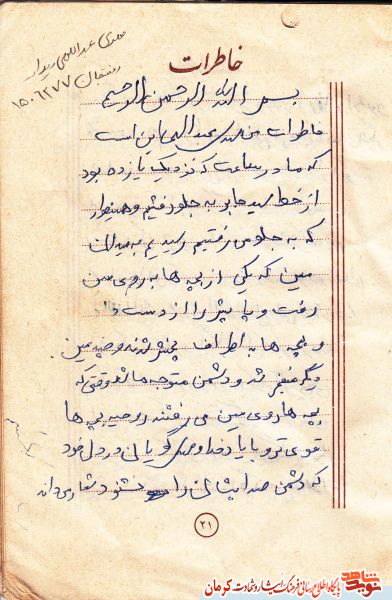 مهدی عبداللهی دیدار
رفسنجان
۱۵۰۶۲۷۷
خاطرات
بسم الله الرحمن الرحیم
خاطرات من مهدی عبداللهی این است
که ما در ساعت که نزدیک یازده بود
از خط سید جابر به جلو رفتیم و همینطور
که به جلو می رفتیم رسیدیم به میدان
مین که یکی از بچه ها به روی مین
رفت و پایش را از دست داد
و بچه ها به اطراف پخش شدند و چند مین
دیگر منفجر شد و دشمن متوجه ما شد وقتی که
بچه ها روی مین می رفتند روحیه بچه ها
قوی تر و با یاد خدا و مهدی گویان در دل خود
که دشمن صدایشان را نشنود شعار می دادند
۲۱
شاهد
نوید
پایگاه اطلاع رسانی فرهنگ ایثار و شهادت کرمان